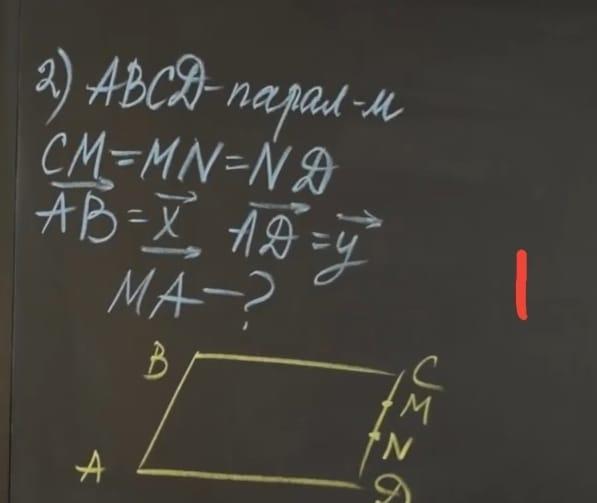 2) ABCD-парал-м
CM=MN=ND
AB=x AD=y
MA-?
B
C
M
N
A
D